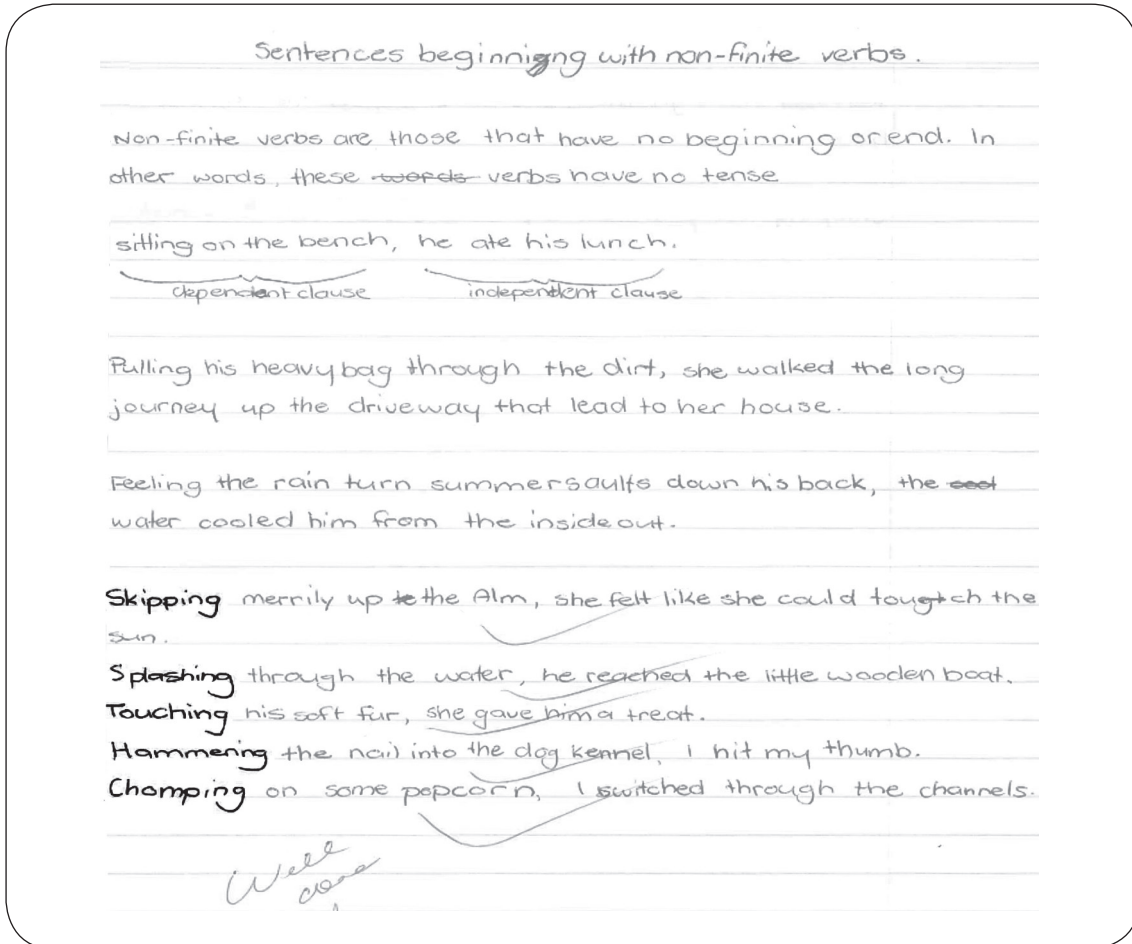 Sentences beginning with non-finite verbs.
Non-finite verbs are those that have no beginning or end. In
other words, these words verbs have no tense
sitting on the bench, he ate his lunch.
dependent clause independent clause
Pulling his heavy bag through the dirt, she walked the long
journey up the driveway that lead to her house.
Feeling the rain turn summersaults down his back, the cool
water cooled him from the inside out.
Skipping merrily up the Alm, she felt like she could touch the
sun.
Splashing through the water, he reached the little wooden boat.
Touching his soft fur, she gave him a treat.
Hammering the nail into the dog kennel, I hit my thumb.
Chomping on some popcorn, I switched through the channels.
Well
done